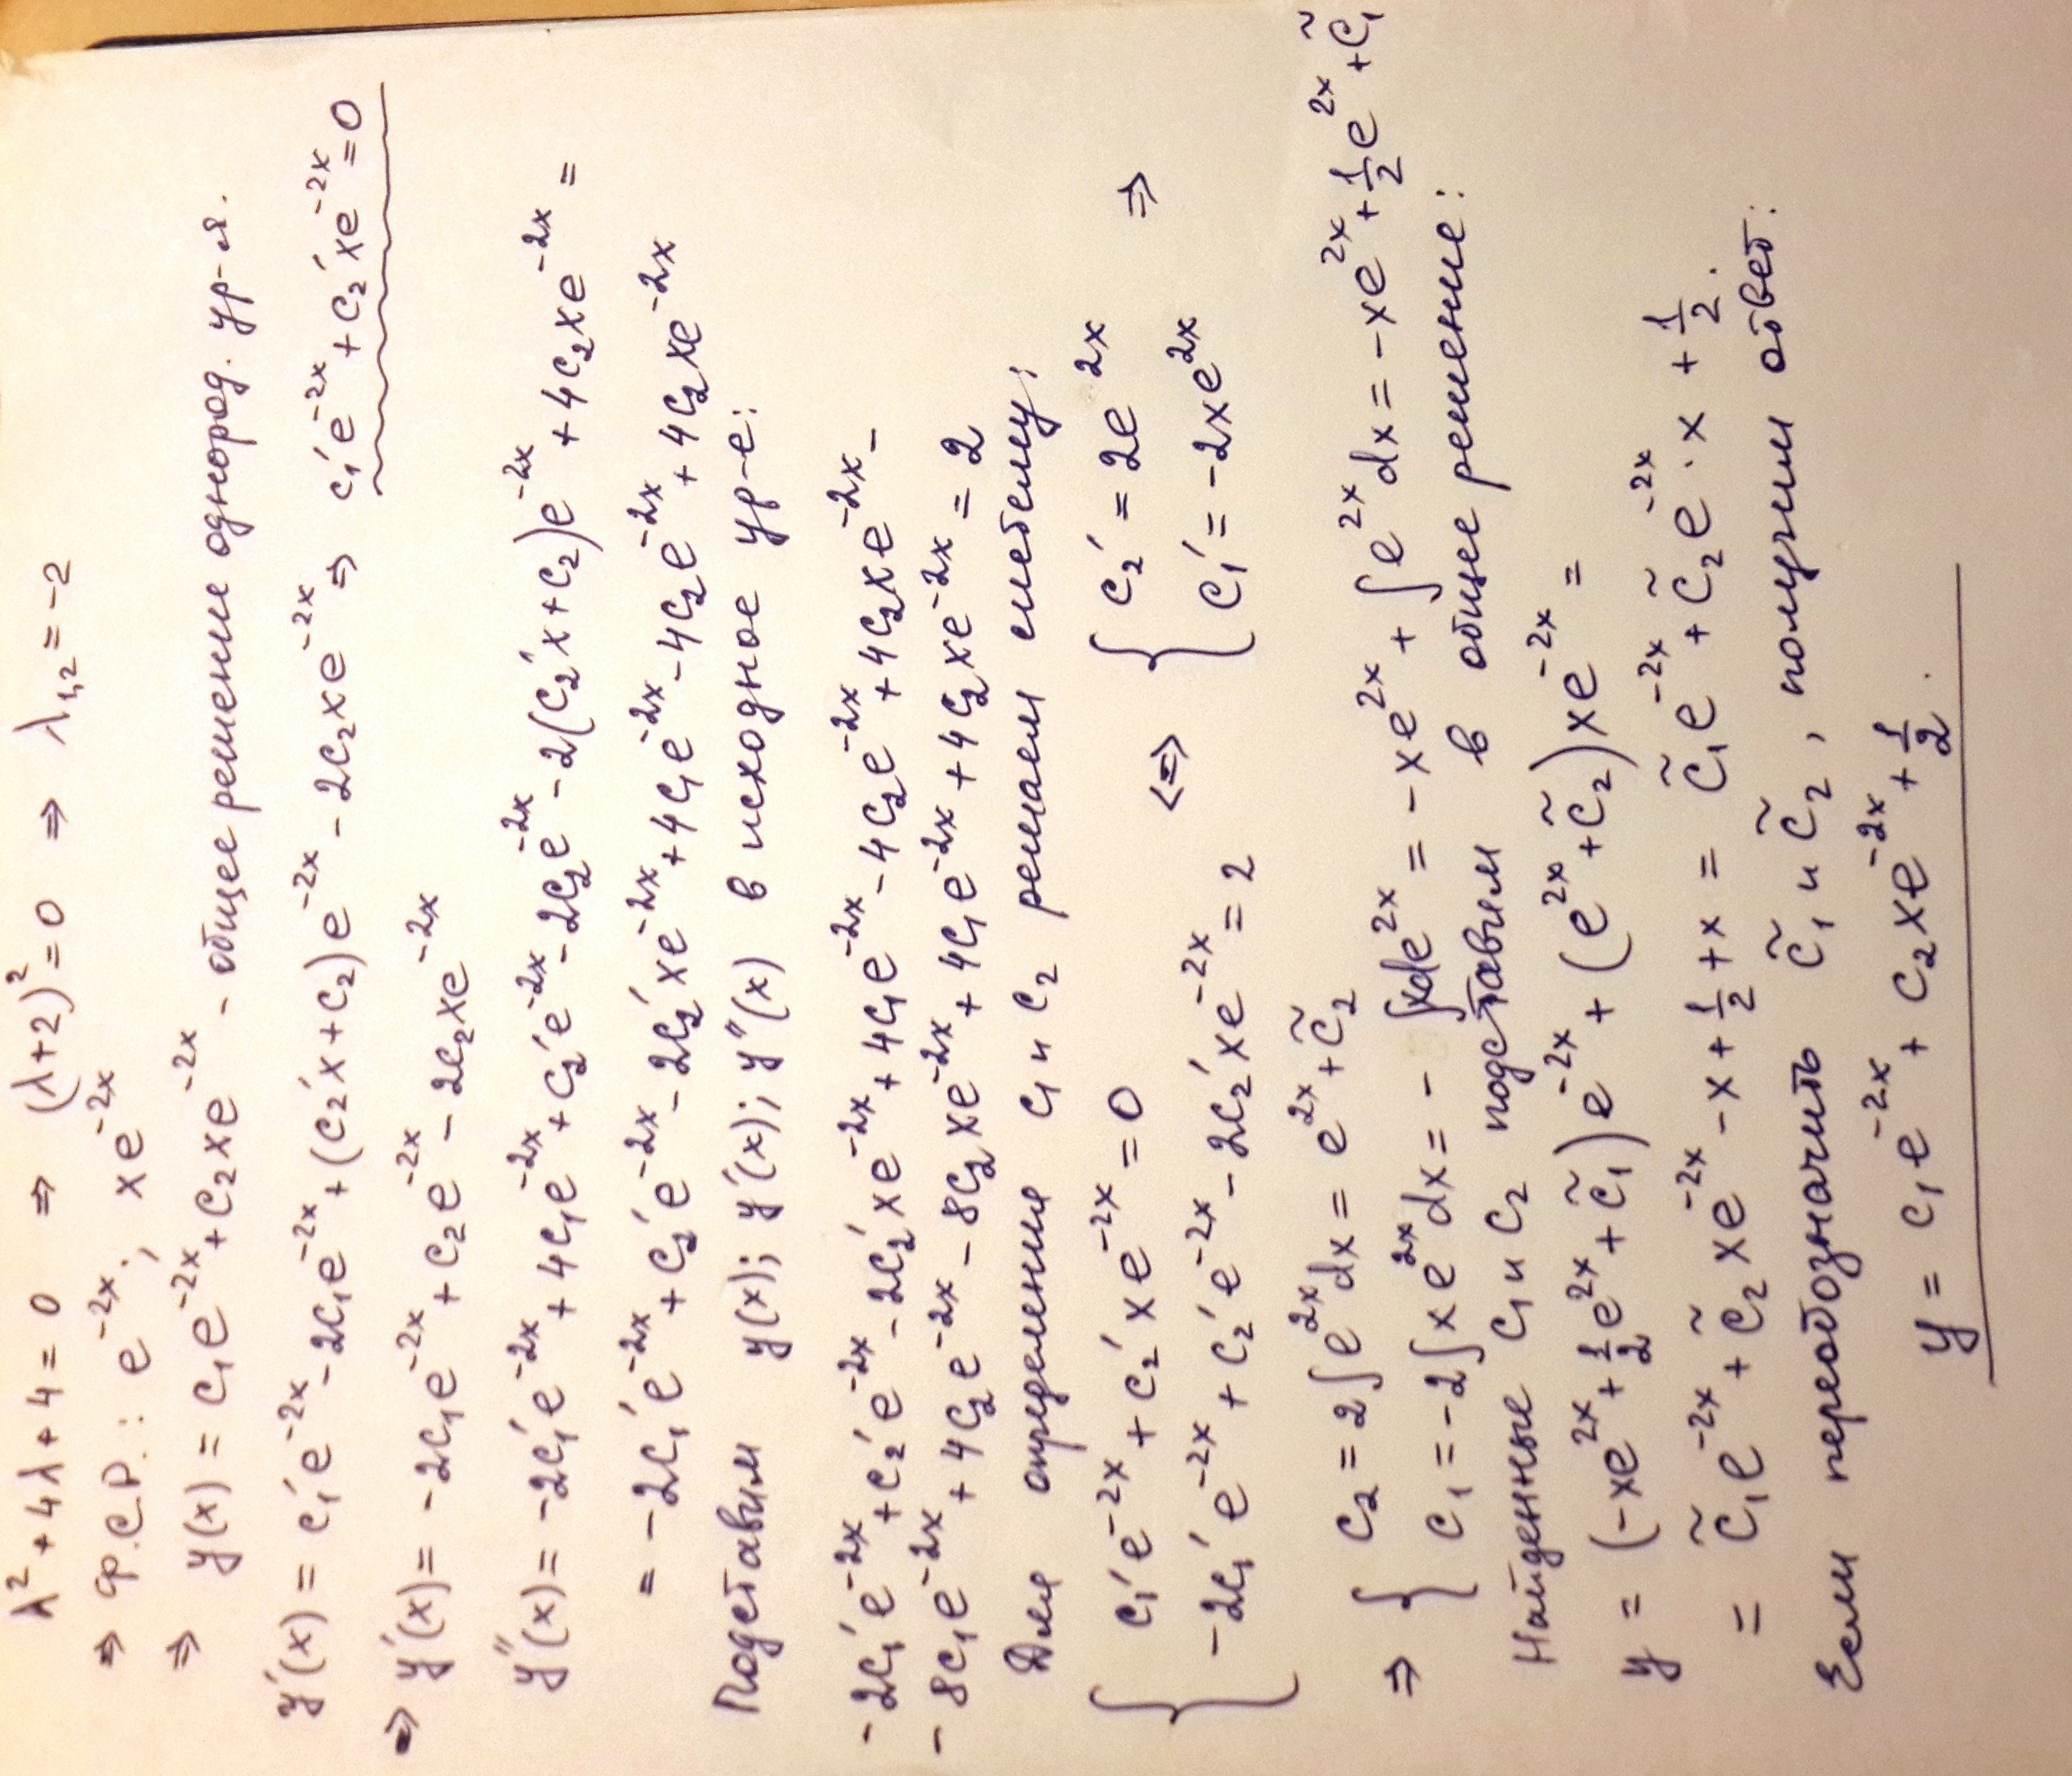 λ² + 4λ + 4 = 0 ⇒ (λ+2)² = 0 ⇒ λ₁,₂ = -2
⇒ ф.с.р.: e⁻²ˣ; xe⁻²ˣ
⇒ y(x) = c₁e⁻²ˣ + c₂xe⁻²ˣ - общее решение однород. ур-я.
y'(x) = c₁'e⁻²ˣ - 2c₁e⁻²ˣ + (c₂'x + c₂)e⁻²ˣ - 2c₂xe⁻²ˣ ⇒ c₁'e⁻²ˣ + c₂'xe⁻²ˣ = 0
⇒ y'(x) = -2c₁e⁻²ˣ + c₂e⁻²ˣ - 2c₂xe⁻²ˣ
y''(x) = -2c₁'e⁻²ˣ + 4c₁e⁻²ˣ + c₂'e⁻²ˣ - 2c₂e⁻²ˣ - 2(c₂'x + c₂)e⁻²ˣ + 4c₂xe⁻²ˣ =
= -2c₁'e⁻²ˣ + c₂'e⁻²ˣ - 2c₂'xe⁻²ˣ + 4c₁e⁻²ˣ - 4c₂e⁻²ˣ + 4c₂xe⁻²ˣ
Подставим y(x); y'(x); y''(x) в исходное ур-е:
-2c₁'e⁻²ˣ + c₂'e⁻²ˣ - 2c₂'xe⁻²ˣ + 4c₁e⁻²ˣ - 4c₂e⁻²ˣ + 4c₂xe⁻²ˣ -
- 8c₁e⁻²ˣ + 4c₂e⁻²ˣ - 8c₂xe⁻²ˣ + 4c₁e⁻²ˣ + 4c₂xe⁻²ˣ = 2
Для определения c₁ и c₂ решаем систему:
{ c₁'e⁻²ˣ + c₂'xe⁻²ˣ = 0 ⇔ { c₂' = 2e²ˣ ⇒
-2c₁'e⁻²ˣ + c₂'e⁻²ˣ - 2c₂'xe⁻²ˣ = 2 c₁' = -2xe²ˣ
⇒ { c₂ = 2∫e²ˣdx = e²ˣ + c̃₂
c₁ = -2∫xe²ˣdx = -∫xde²ˣ = -xe²ˣ + ∫e²ˣdx = -xe²ˣ + ½e²ˣ + c̃₁
Найденные c₁ и c₂ подставим в общее решение:
y = (-xe²ˣ + ½e²ˣ + c̃₁)e⁻²ˣ + (e²ˣ + c̃₂)xe⁻²ˣ =
= c̃₁e⁻²ˣ + c̃₂xe⁻²ˣ - x + ½ + x = c̃₁e⁻²ˣ + c̃₂e⁻²ˣ·x + ½.
Если переобозначить c̃₁ и c̃₂, получим ответ:
y = c₁e⁻²ˣ + c₂xe⁻²ˣ + ½.